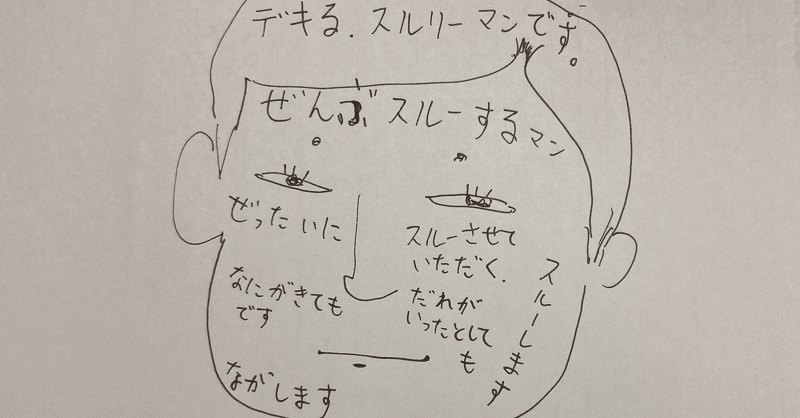 デキる.スルリーマンです。
ぜんぶスルーするマン
ぜったいに
なにがきても
です
ながします
スルーさせて
いただく.
だれが
いったとして
も
スルーします